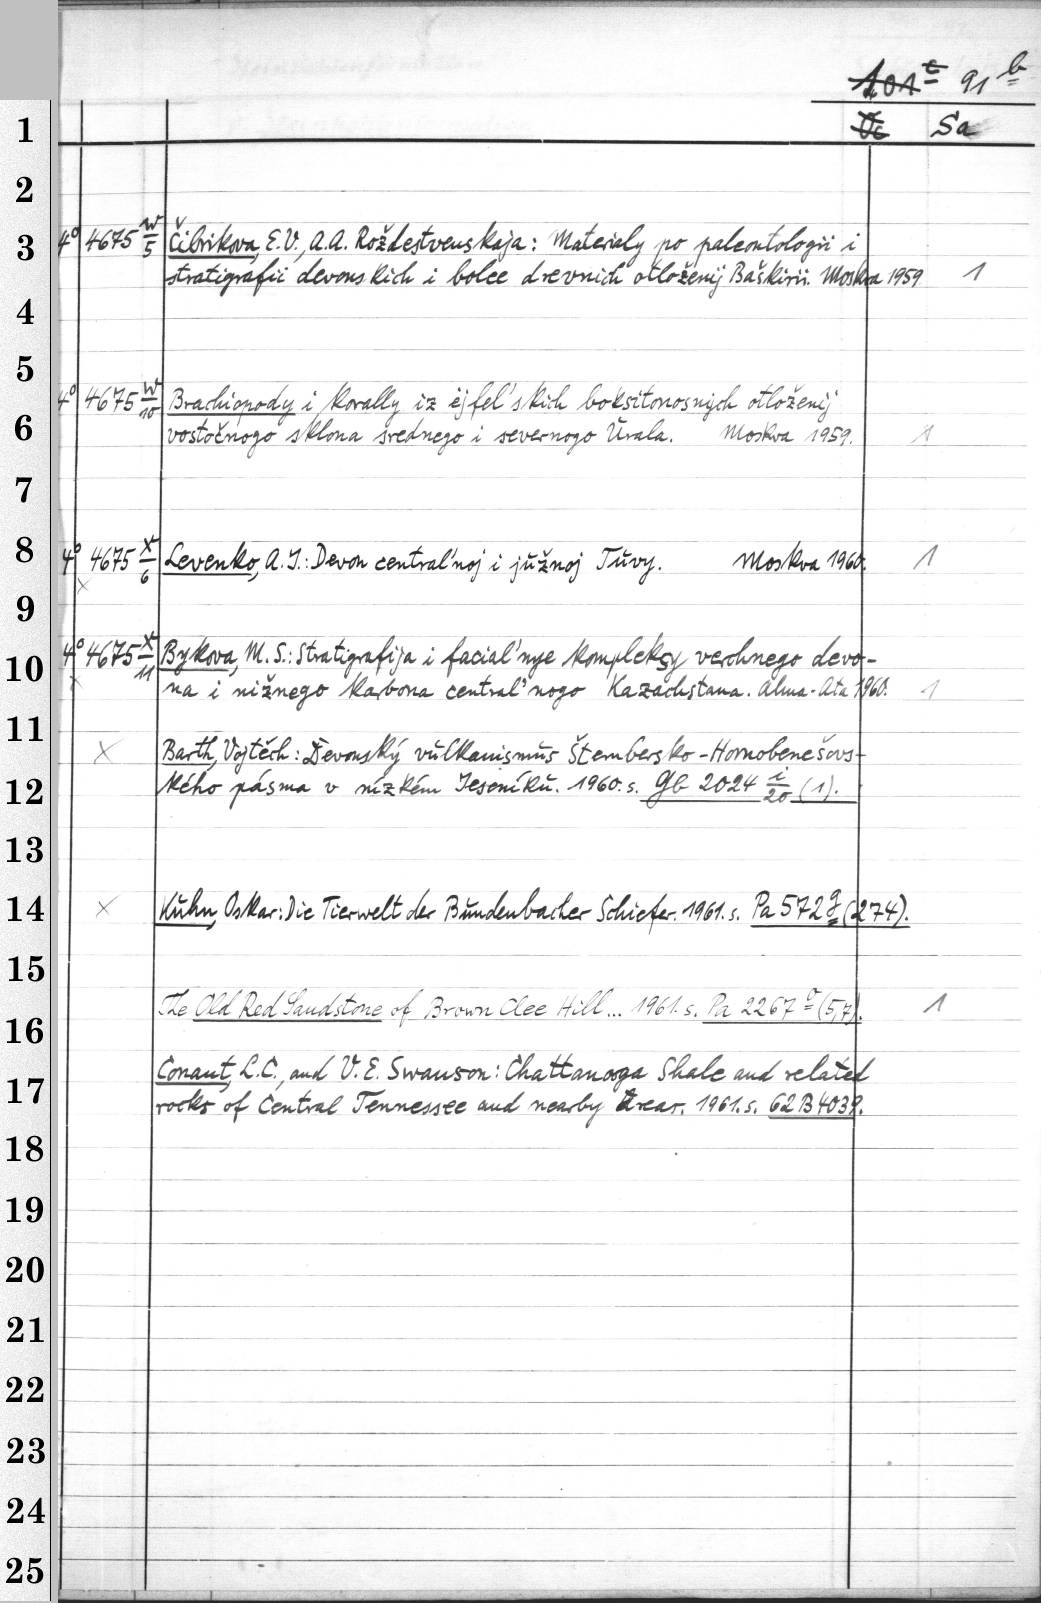 101 t 91 b
1 Uc Sa
2
3 4° 4675 w/5 Čibrikova, E.V., A.A. Roždestvenskaja: Materialy po paleontologii i
stratigrafii devonskich i bolee drevnich otloženij Baškirii. Moskva 1959 1
4
5
4° 4675 w/10 Brachiopody i korally iz ėjfel'skich boksitonosnych otloženij
6 vostočnogo sklona srednego i severnogo Urala. Moskva 1959. 1
7
8 4° 4675 x/6 Levenko, A.I.: Devon central'noj i južnoj Tuvy. Moskva 1960. 1
x
9
4° 4675 x/11 Bykova, M.S.: Stratigrafija i facial'nye kompleksy verchnego devo-
10 x na i nižnego karbona central'nogo Kazachstana. Alma-Ata 1960. 1
11 x Barth, Vojtěch: Devonský vulkanismus Štembersko-Hornobenešovs-
12 kého pásma v nízkém Jeseníku. 1960. s. Gb 2024 i/20 (1).
13
14 x Kuhn, Oskar: Die Tierwelt der Bundenbacher Schiefer. 1961. s. Pa 572 g (274).
15
16 The Old Red Sandstone of Brown Clee Hill... 1961. s. Pa 2267 a (5,7). 1
Conant, L.C., and V.E. Swanson: Chattanooga Shale and related
17 rocks of Central Tennessee and nearby areas. 1961. s. 62 B 4039.
18
19
20
21
22
23
24
25